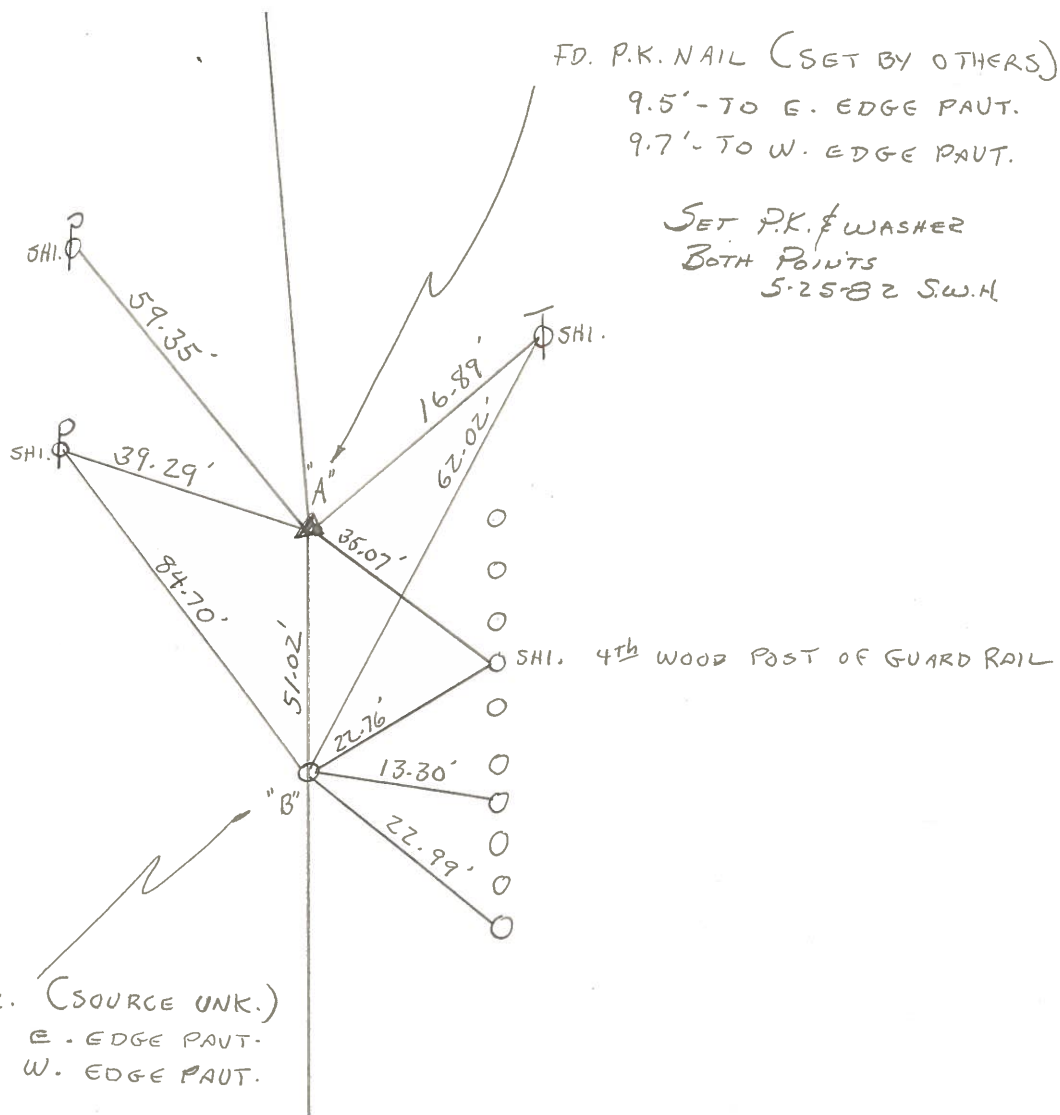 FD. P.K. NAIL (SET BY OTHERS)
9.5' - TO E. EDGE PAVT.
9.7' - TO W. EDGE PAVT.
SET P.K. & WASHER
BOTH POINTS
5-25-82 S.W.H
SHI.
59.35'
SHI.
16.89'
62.02'
SHI.
39.29'
"A"
35.07'
84.70'
51.02'
SHI. 4th WOOD POST OF GUARD RAIL
22.76'
13.30'
"B"
22.99'
(SOURCE UNK.)
E. EDGE PAVT.
W. EDGE PAVT.